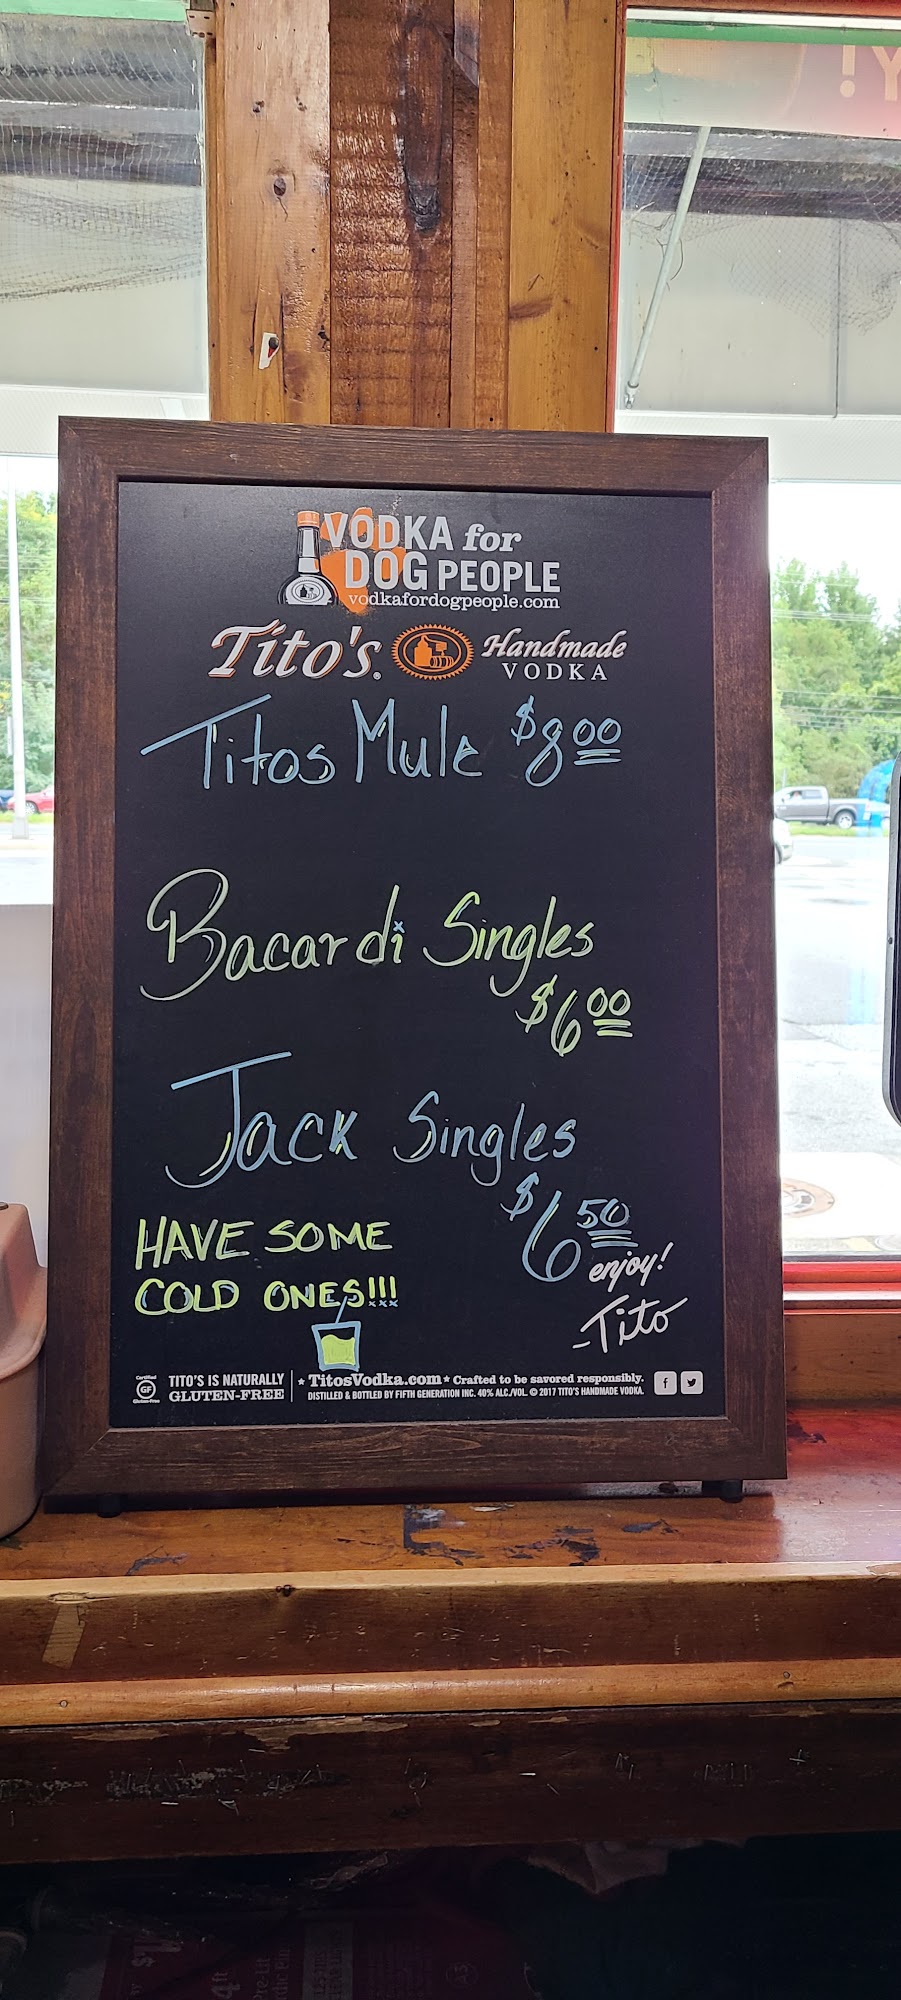 Y!
VODKA for
DOG PEOPLE
vodkafordogpeople.com
Tito's® Handmade
VODKA
Titos Mule $8.00
Bacardi Singles
$6.00
Jack Singles
$6.50
HAVE SOME
COLD ONES!!!
enjoy!
-Tito
Certified
GF
Gluten-Free
TITO'S IS NATURALLY
GLUTEN-FREE
★ TitosVodka.com ★ Crafted to be savored responsibly.
DISTILLED & BOTTLED BY FIFTH GENERATION INC. 40% ALC./VOL. © 2017 TITO'S HANDMADE VODKA.